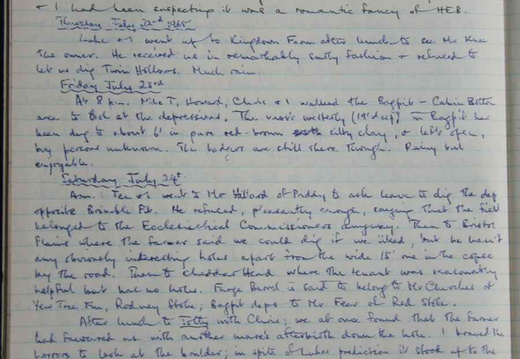 I had been suspecting it was a romantic fancy of HEB.
Thursday July 22nd 1965
Luke & I went up to Kingdown Farm after lunch to see Mr
the owner. He received us in remarkably surly fashion & refused to
let us dig Twin Hollows. Much rain.
Friday July 23rd
At 8 p.m. Mike T, Howard, Chris & I walked the Bagpit - Cabin Bottom
area to look at the depressions. The most westerly in Bagpit has
been dug to about 6' in pure red-brown silty clay, & left open,
by persons unknown. The badgers are still there though. Rainy but
enjoyable.
Saturday July 24th
A.m.: I went to Mr Hillard of Priddy to ask leave to dig the dep
opposite Brimble Pit. He refused, pleasantly enough, saying that the field
belonged to the Ecclesiastical Commissioners anyway. Then to Bristol
Plain where the farmer said we could dig if we liked, but he hasn't
any obviously interesting holes apart from the wide 15' one in the copse
by the road. Then to Cheddar Head where the tenant was reasonably
helpful but had no holes. Farge Barrel is said to belong to Mr Churches of
Yew Tree Fm, Rodney Stoke; Bagpit deps to Mr Fear of Rod. Stoke.
After lunch to Totty with Chris; we at once found that the farmer
had favoured us with another mare's afterbirth down the hole. I braved the
horrors to look at the boulder; in spite of Luke's prediction it stood up to the